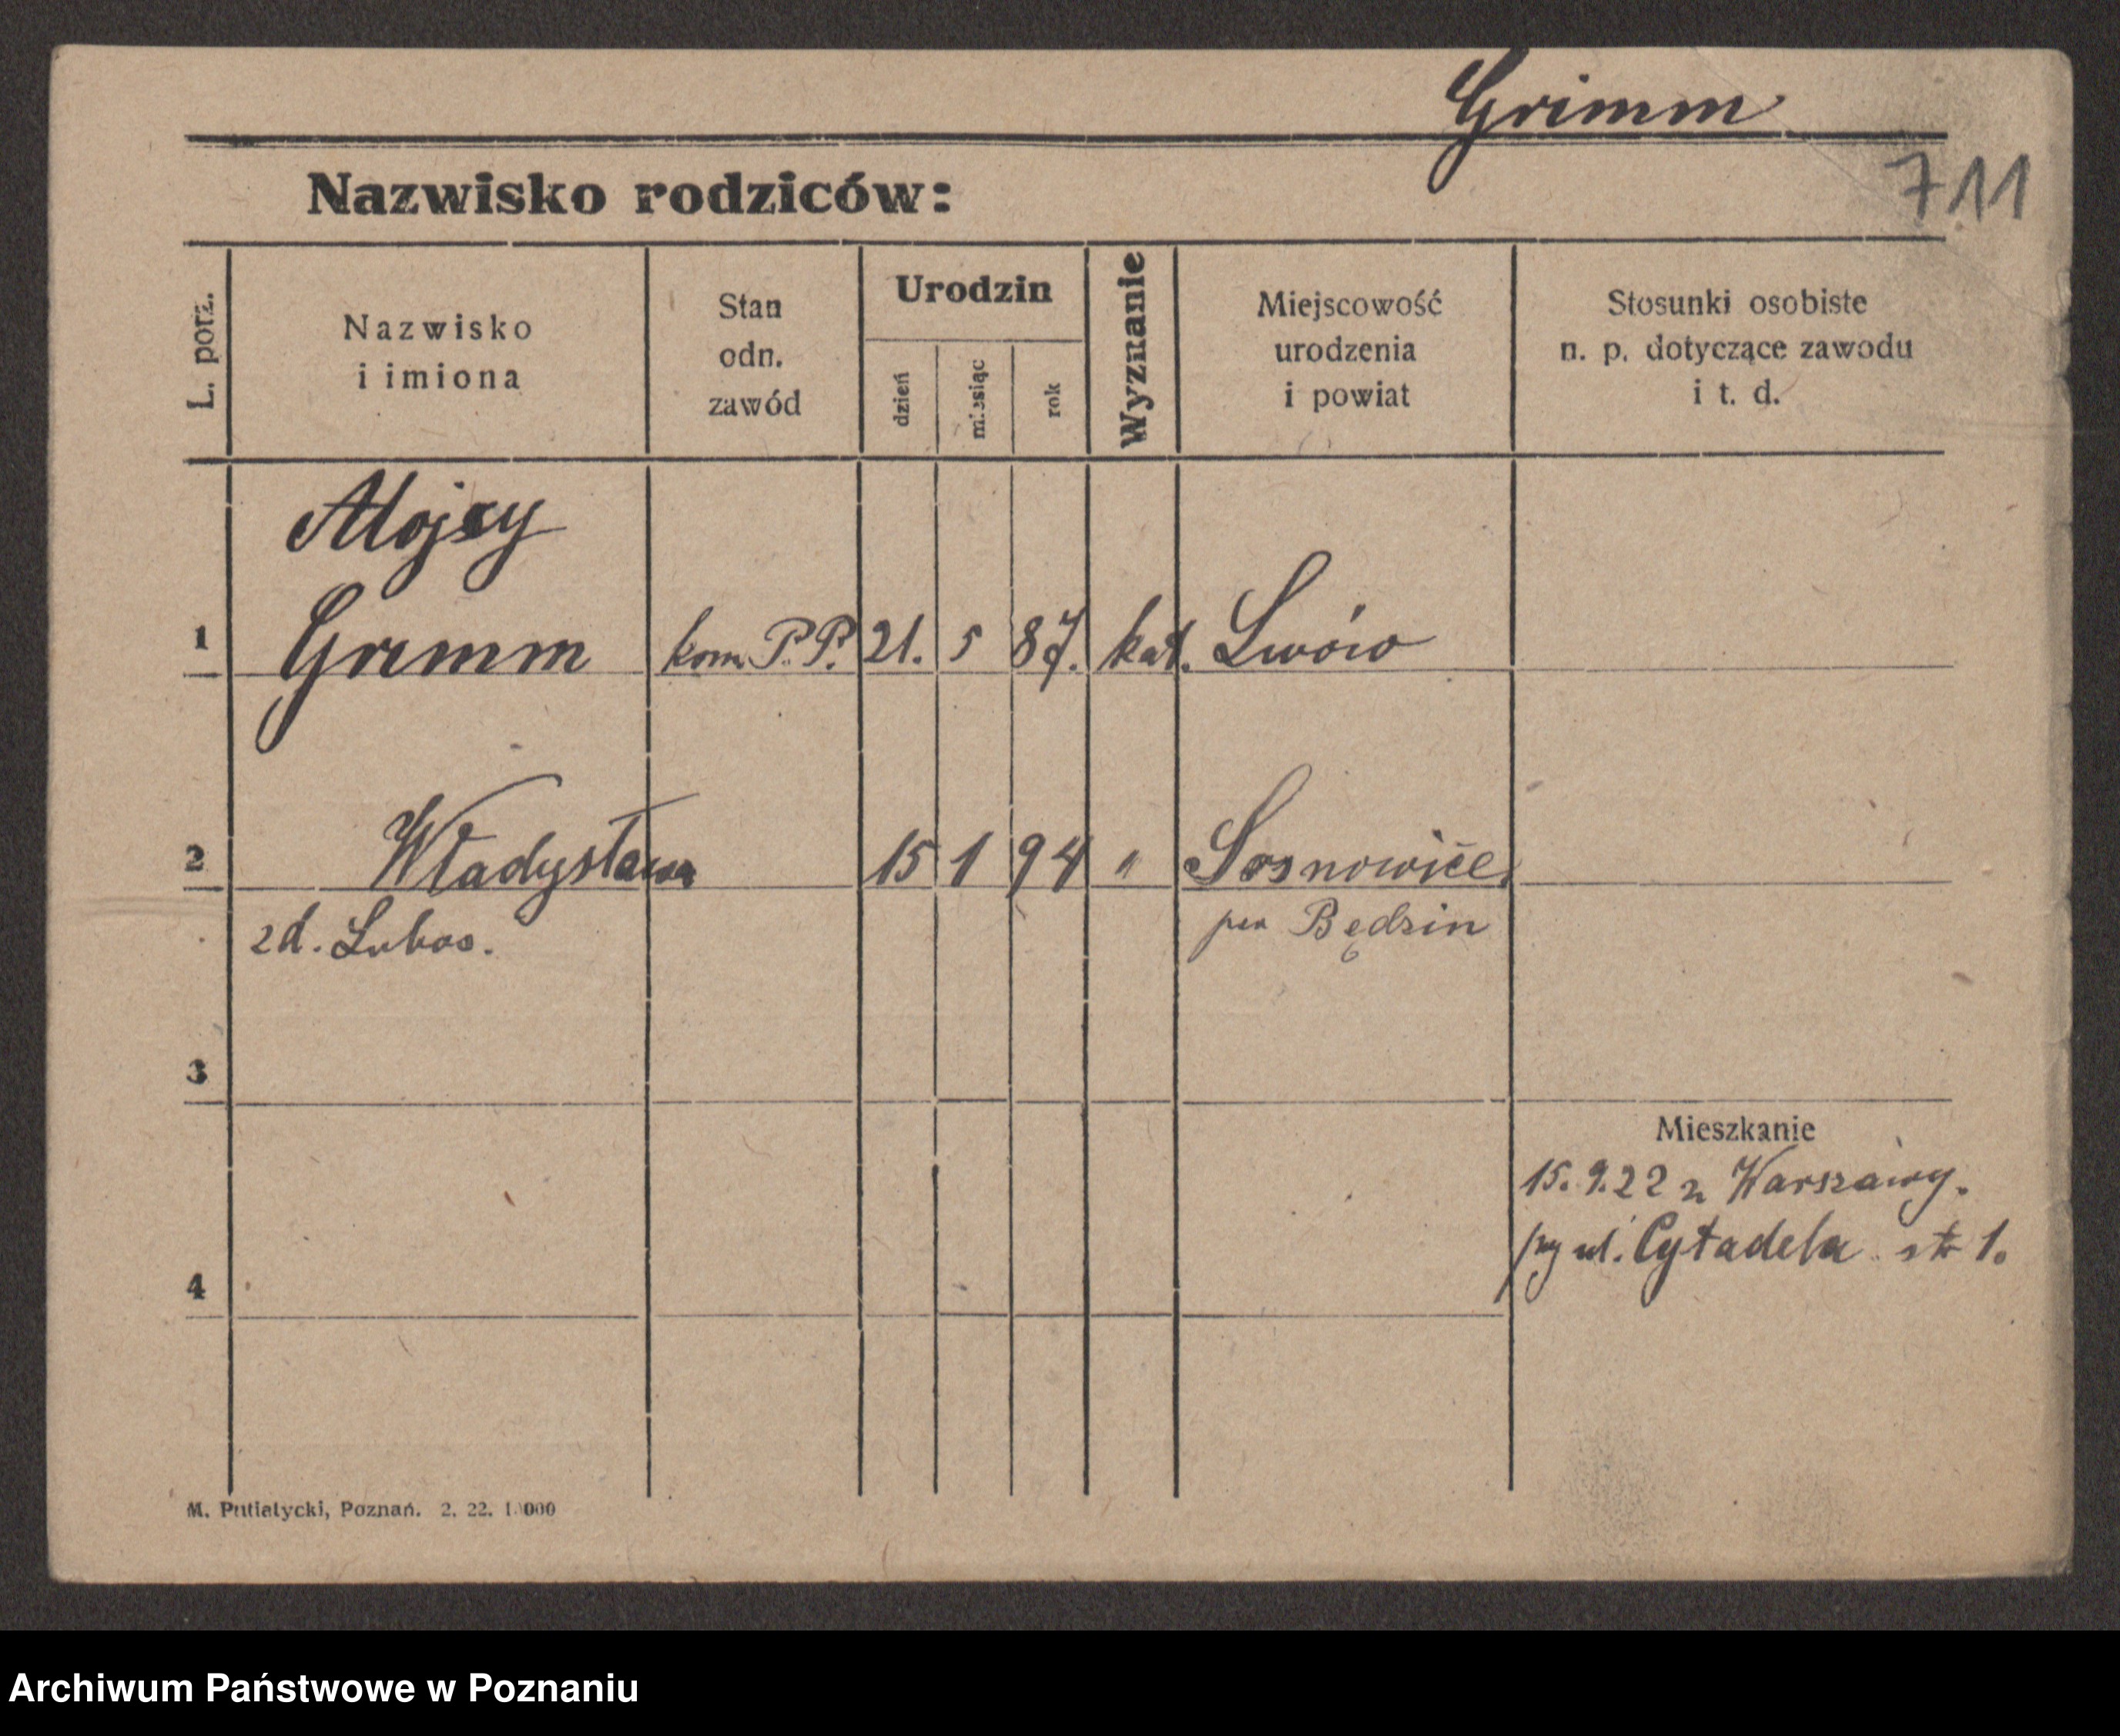 Grimm
711
Nazwisko rodziców:
L. porz.
Nazwisko
i imiona
Stan
odn.
zawód
Urodzin
dzień
miesiąc
rok
Wyznanie
Miejscowość
urodzenia
i powiat
Stosunki osobiste
n. p. dotyczące zawodu
i t. d.
Alojzy
1 Grimm kom. P.P. 21. 5 87. kat. Lwów
2 Władysława 15 1 94 " Sosnowice
zd. Lubas. Będzin
3
Mieszkanie
15.9.22 z Warszawy.
ul. Cytadela 1.
4
M. Putiatycki, Poznań. 2. 22.
Archiwum Państwowe w Poznaniu